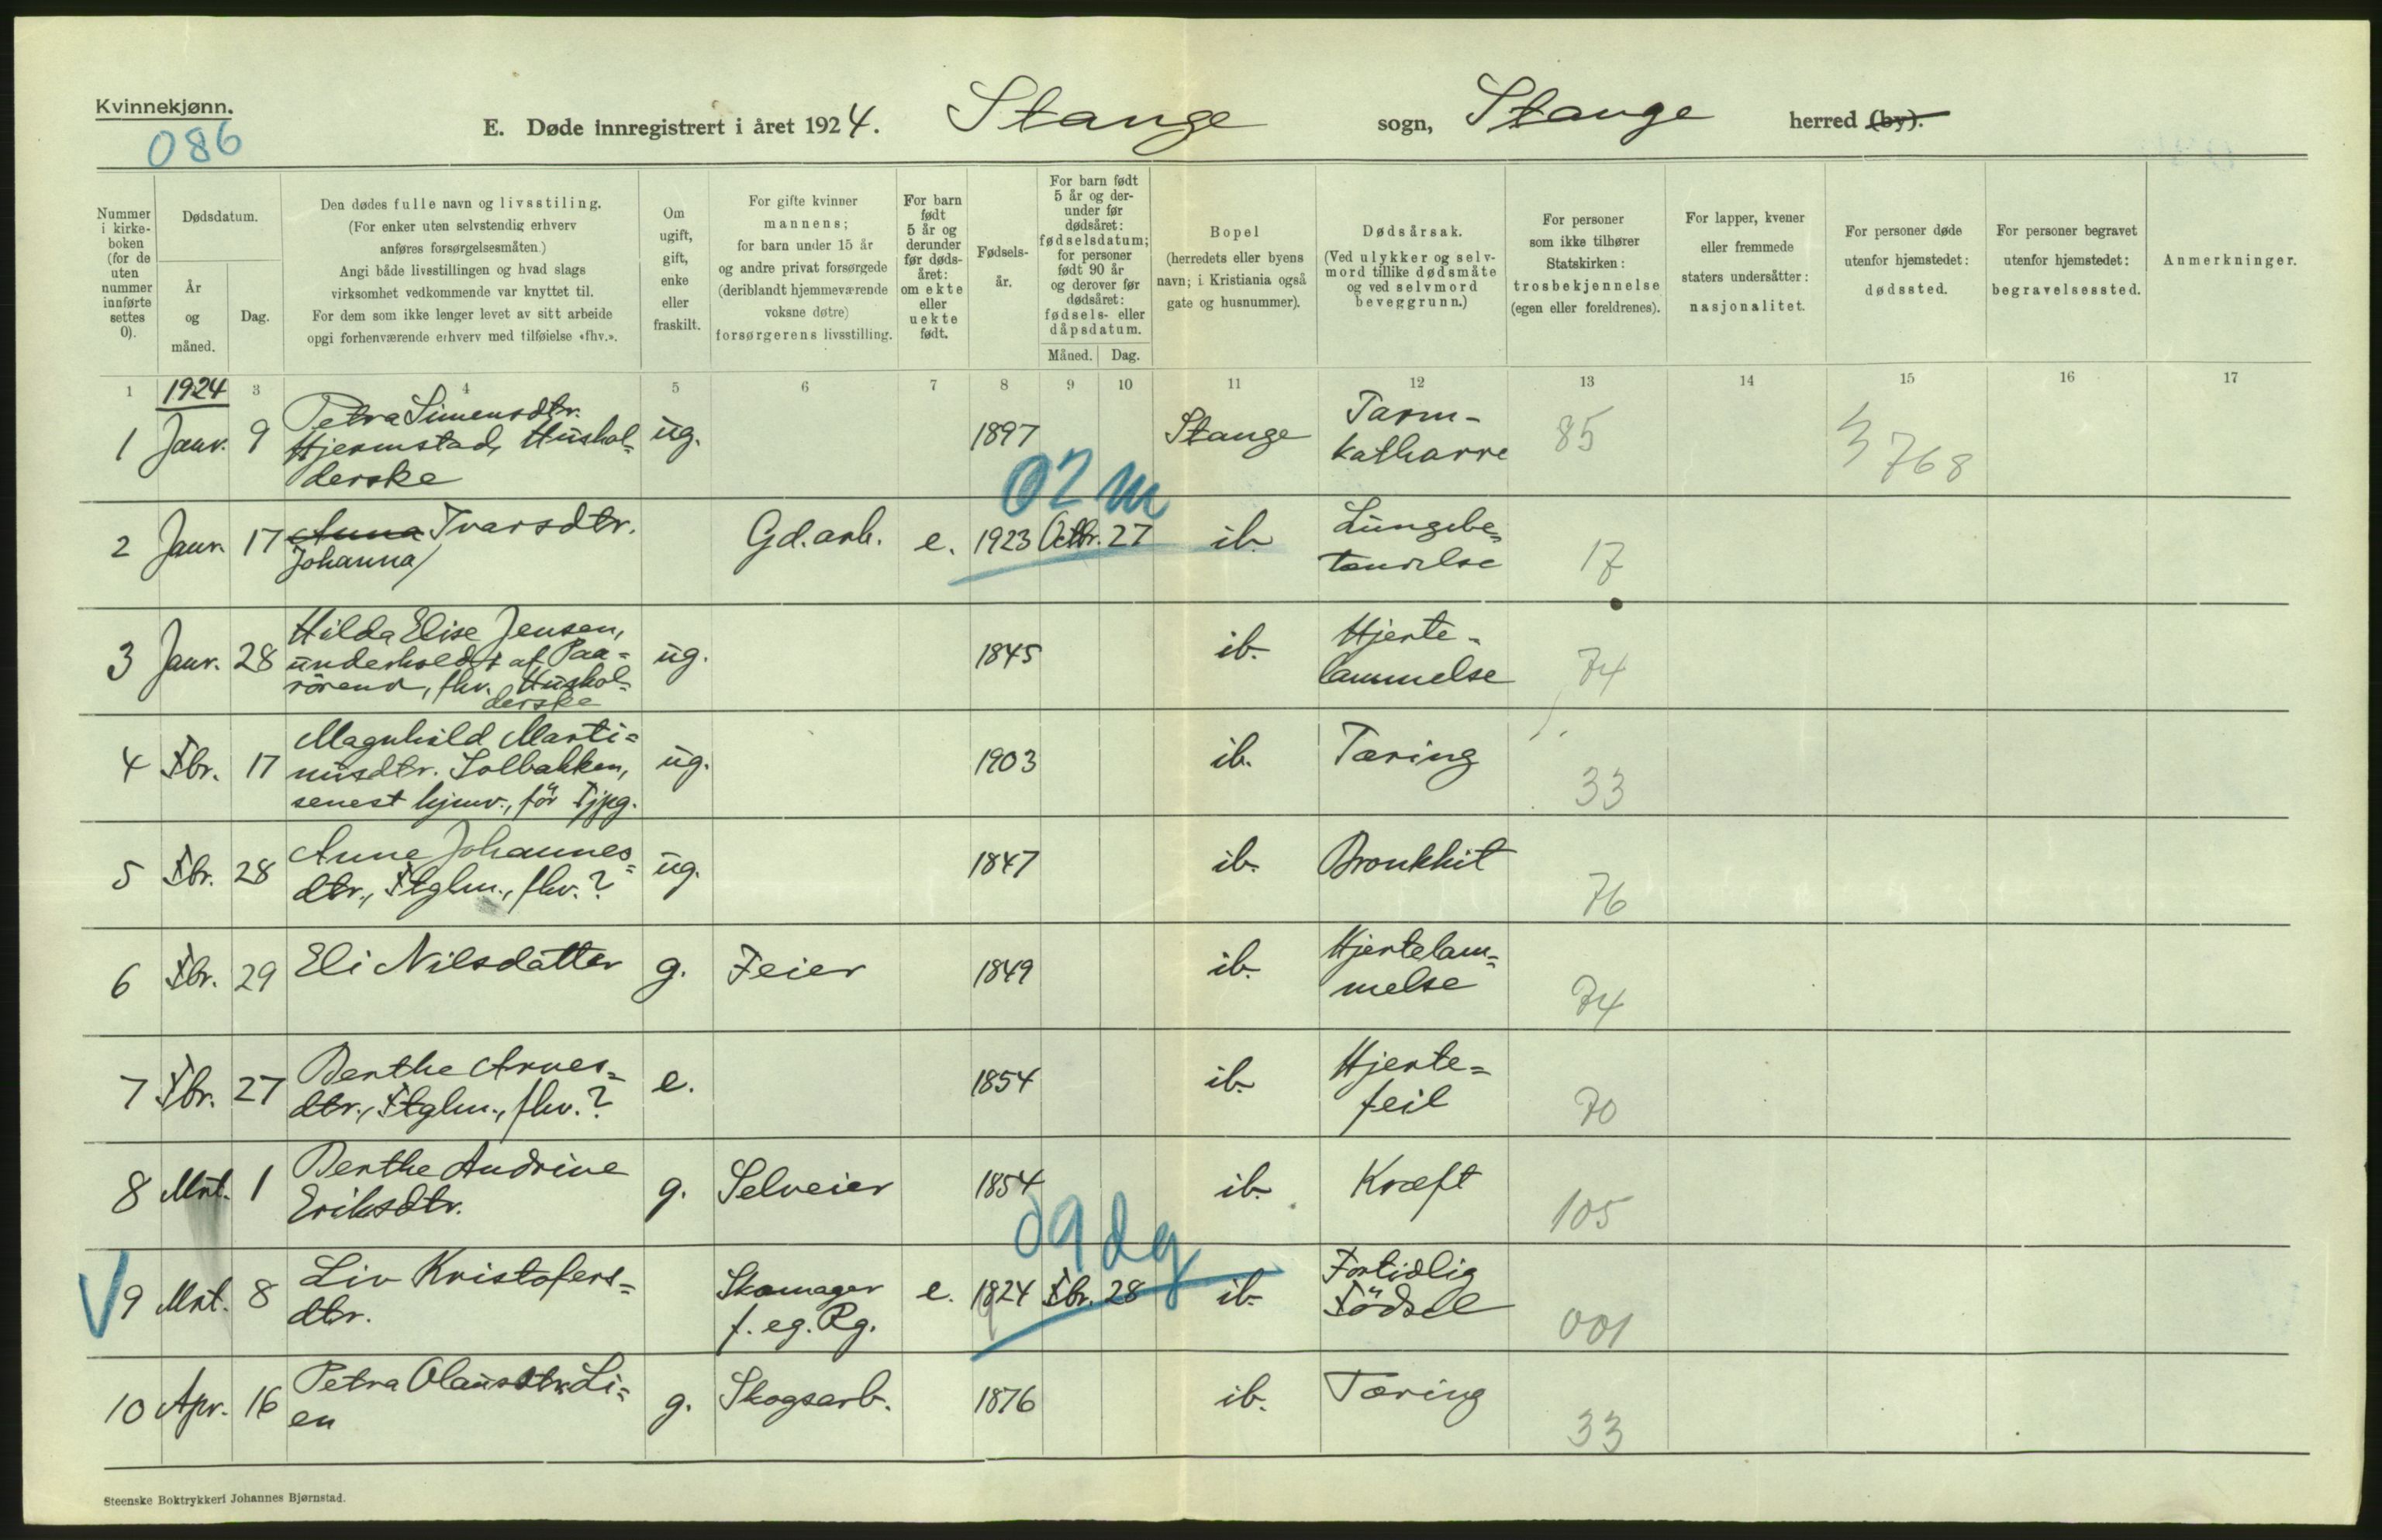 Kvinnekjønn.
086
E. Døde innregistrert i året 1924. Stange sogn, Stange herred (by).
Nummer i kirke-boken (for de uten nummer innførte settes 0).
Dødsdatum.
År og måned.
Dag.
Den dødes fulle navn og livsstiling.
(For enker uten selvstendig erhverv
anføres forsørgelsesmåten.)
Angi både livsstillingen og hvad slags
virksomhet vedkommende var knyttet til.
For dem som ikke lenger levet av sitt arbeide
opgi forhenværende erhverv med tilføielse «fhv.».
Om ugift, gift, enke eller fraskilt.
For gifte kvinner
mannens;
for barn under 15 år
og andre privat forsørgede
(deriblandt hjemmeværende
voksne døtre)
forsørgerens livsstilling.
For barn født 5 år og derunder før døds-året: om ekte eller uekte født.
Fødsels-år.
For barn født
5 år og der-
under før
dødsåret:
fødselsdatum;
for personer
født 90 år
og derover før
dødsåret:
fødsels- eller
dåpsdatum.
Måned. Dag.
Bopel
(herredets eller byens
navn; i Kristiania også
gate og husnummer).
Dødsårsak.
(Ved ulykker og selv-
mord tillike dødsmåte
og ved selvmord
beveggrunn.)
For personer
som ikke tilhører
Statskirken:
trosbekjennelse
(egen eller foreldrenes).
For lapper, kvener
eller fremmede
staters undersåtter:
nasjonalitet.
For personer døde
utenfor hjemstedet:
dødssted.
For personer begravet
utenfor hjemstedet:
begravelsessted.
Anmerkninger.
1 3 4 5 6 7 8 9 10 11 12 13 14 15 16 17
1924
1 Janr. 9 Petra Simensdtr. Hjermstad, Hushol= derske ug. 1897 Stange Tarm- katharre 85 3 768
02 m
2 Janr. 17 Anna Ivarsdtr. Johanna/ Gd.arb. e. 1923 Octbr. 27 ib. Lungebe= tændelse 17
3 Janr. 28 Hilda Elise Jensen, underholdt af Paa= rörend, fhv. Hushol= derske ug. 1845 ib. Hjerte= lammelse 74
4 Fbr. 17 Magnhild Marti= nusdtr. Solbakken, senest hjmv., för Tjpg. ug. 1903 ib. Tæring 33
5 Fbr. 28 Anne Johannes= dtr., Ftglm., fhv.? ug. 1847 ib. Bronkhit 76
6 Fbr. 29 Eli Nilsdatter g. Feier 1849 ib. Hjertelam= melse 74
7 Fbr. 27 Berthe Arnes= dtr., Ftglm., fhv.? e. 1854 ib. Hjerte= feil 70
8 Mrt. 1 Berthe Andrine Eriksdtr. g. Selveier 1854 ib. Kræft 105
09 dg
9 Mrt. 8 Liv Kristofers= dtr. Skomager f. eg. Rg. e. 1824 9 Fbr. 28 ib. Fortidlig Födsel 001
10 Apr. 16 Petra Olausdtr. Li= en g. Skogsarb. 1876 ib. Tæring 33
Steenske Boktrykkeri Johannes Bjørnstad.